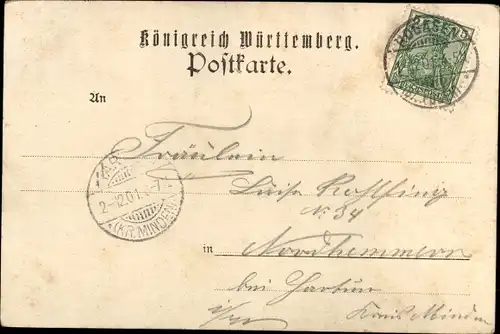 Königreich Württemberg.
Postkarte.
An
Fräulein
Luise
N. 84
in Nordhemmern
bei
i/W Kreis Minden
2-12.01
(KR. MINDEN)